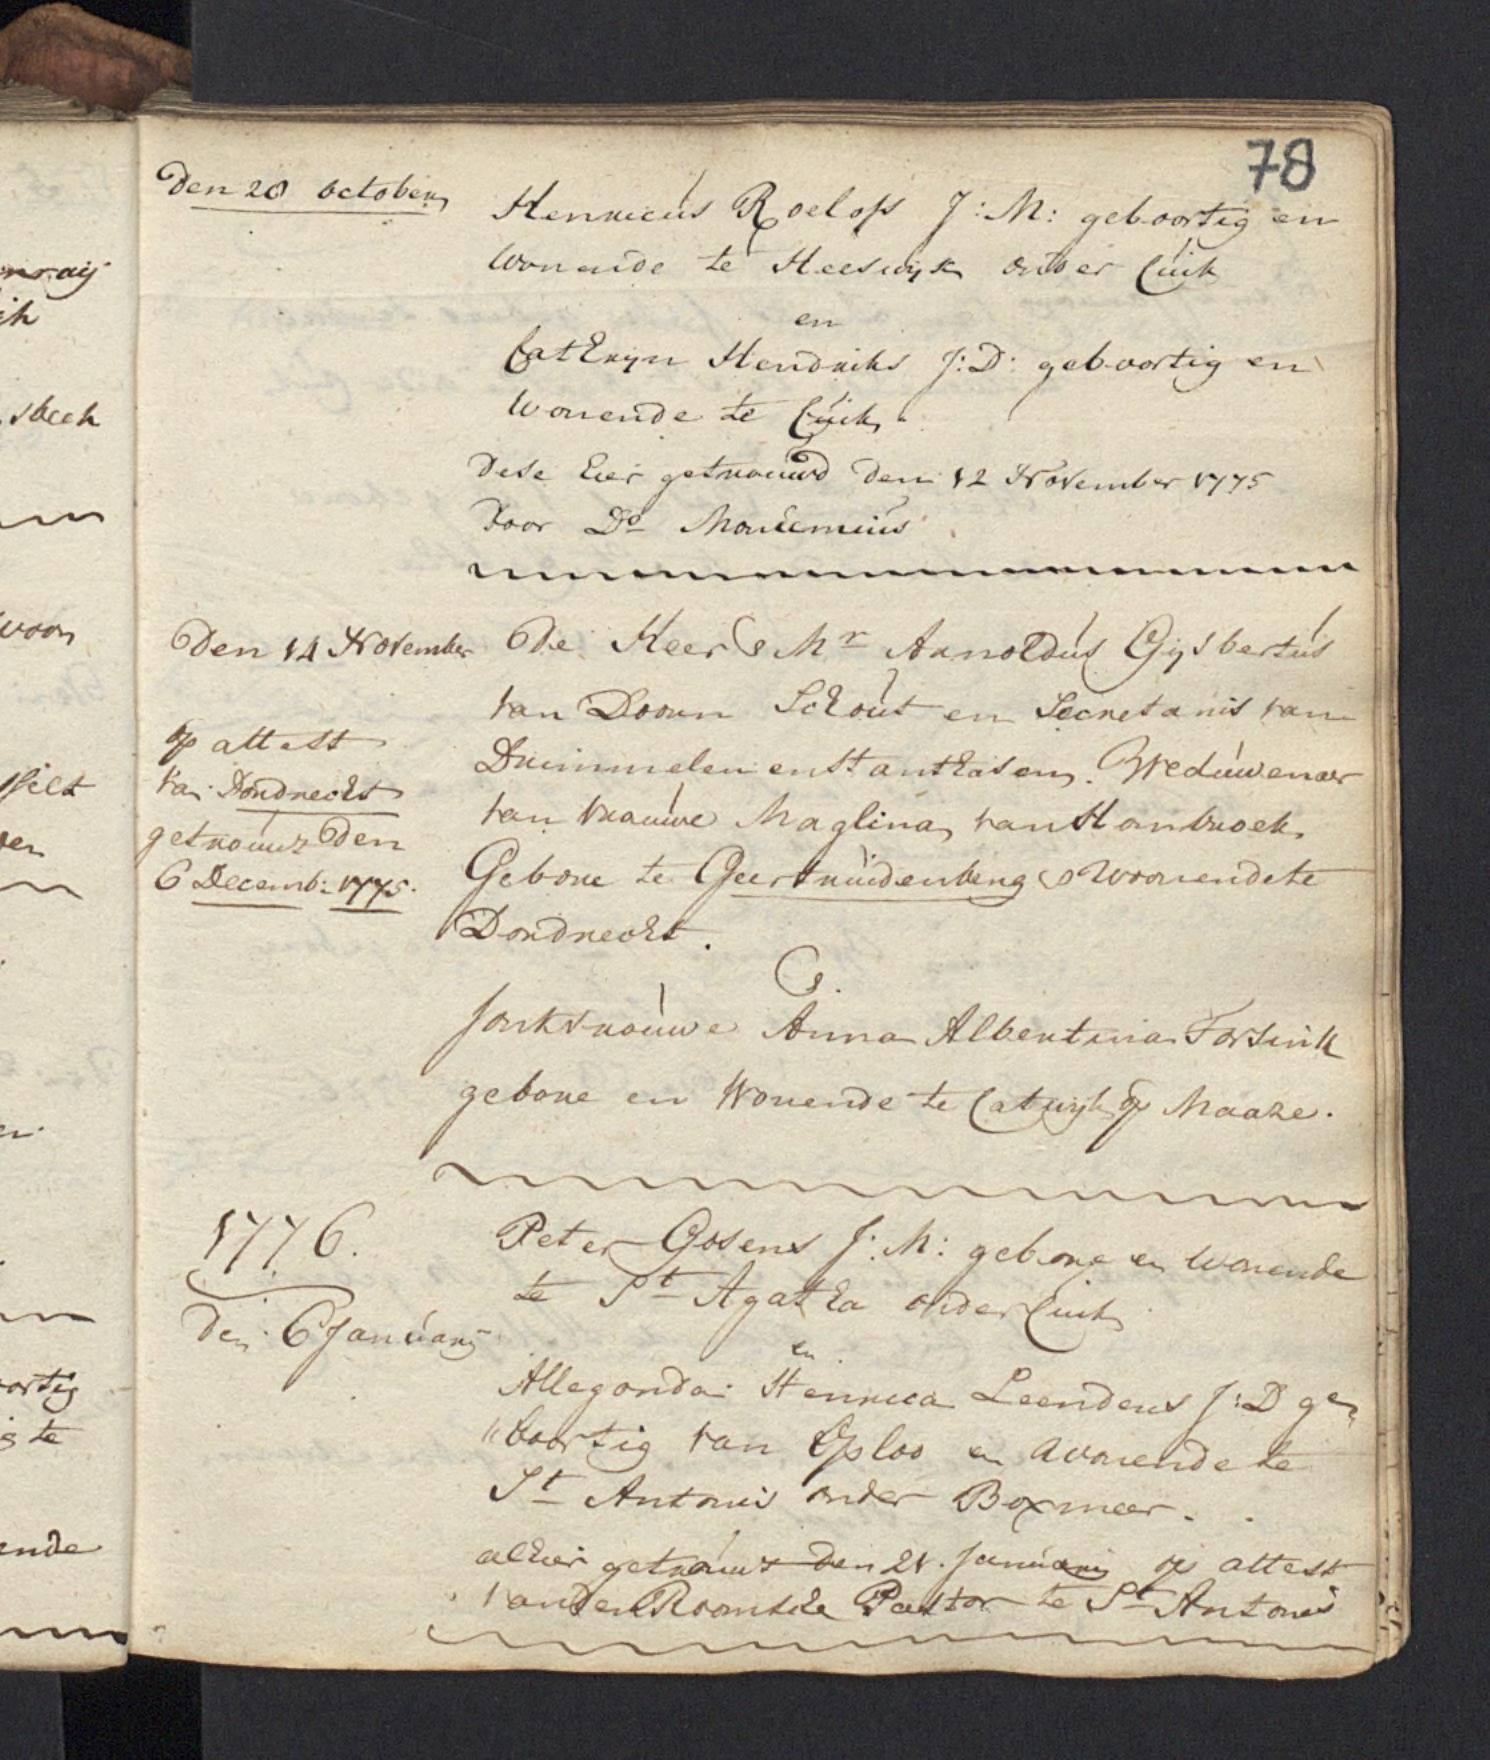 78
Den 20 october
Henricus Roelofs J:M: geboortig en
wonende te Heeswijk onder Cuik
en
Cathryn Hendriks J:D: geboortig en
wonende te Cuik.
Dese hier getrouwd den 12 November 1775
door Do
Den 14 November
De Heer & Mr Arnoldus Gijsbertus
van Doorn Schout en Secretaris van
en Weduwenaer
van vrauwe Maglina van Hanbroek.
Gebore te Geertruidenberg & Woonende te
Dordrecht.
op attest
van Dordrecht
getrouwt den
6 Decemb: 1775.
&.
Jonkvrouwe Anna Albertina Forsink
gebore en Wonende te Catwijk op Maaze.
1776.
Den 6 January
Peter Gosens J:M: gebore en wonende
te St Agatha onder Cuik
en
Allegonda Henrica Leenders J:D ge„
„boortig van Oploo en Wonende te
St Antonis onder Boxmeer.
alhier getrouwt den 21. January op attest
van den Roomsche Pastor te St Antonis
enraij
sbeek
woon
den
oortig
g te
ende